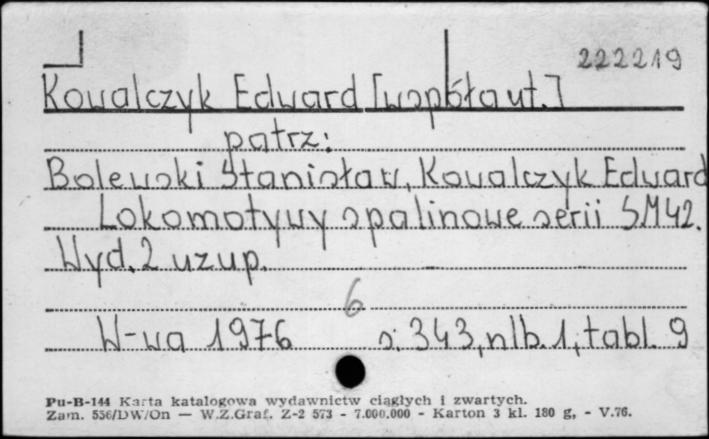 222219
Kowalczyk Edward [współaut.]
patrz:
Bolewski Stanisław, Kowalczyk Edward
Lokomotywy spalinowe serii SM42.
Wyd. 2 uzup.
6
W-wa 1976 s. 343, nlb. 1, tabl. 9
Pu-B-144 Karta katalogowa wydawnictw ciągłych i zwartych.
Zam. 556/DW/On — W.Z.Graf. Z-2 573 - 7.000.000 - Karton 3 kl. 180 g, - V.76.